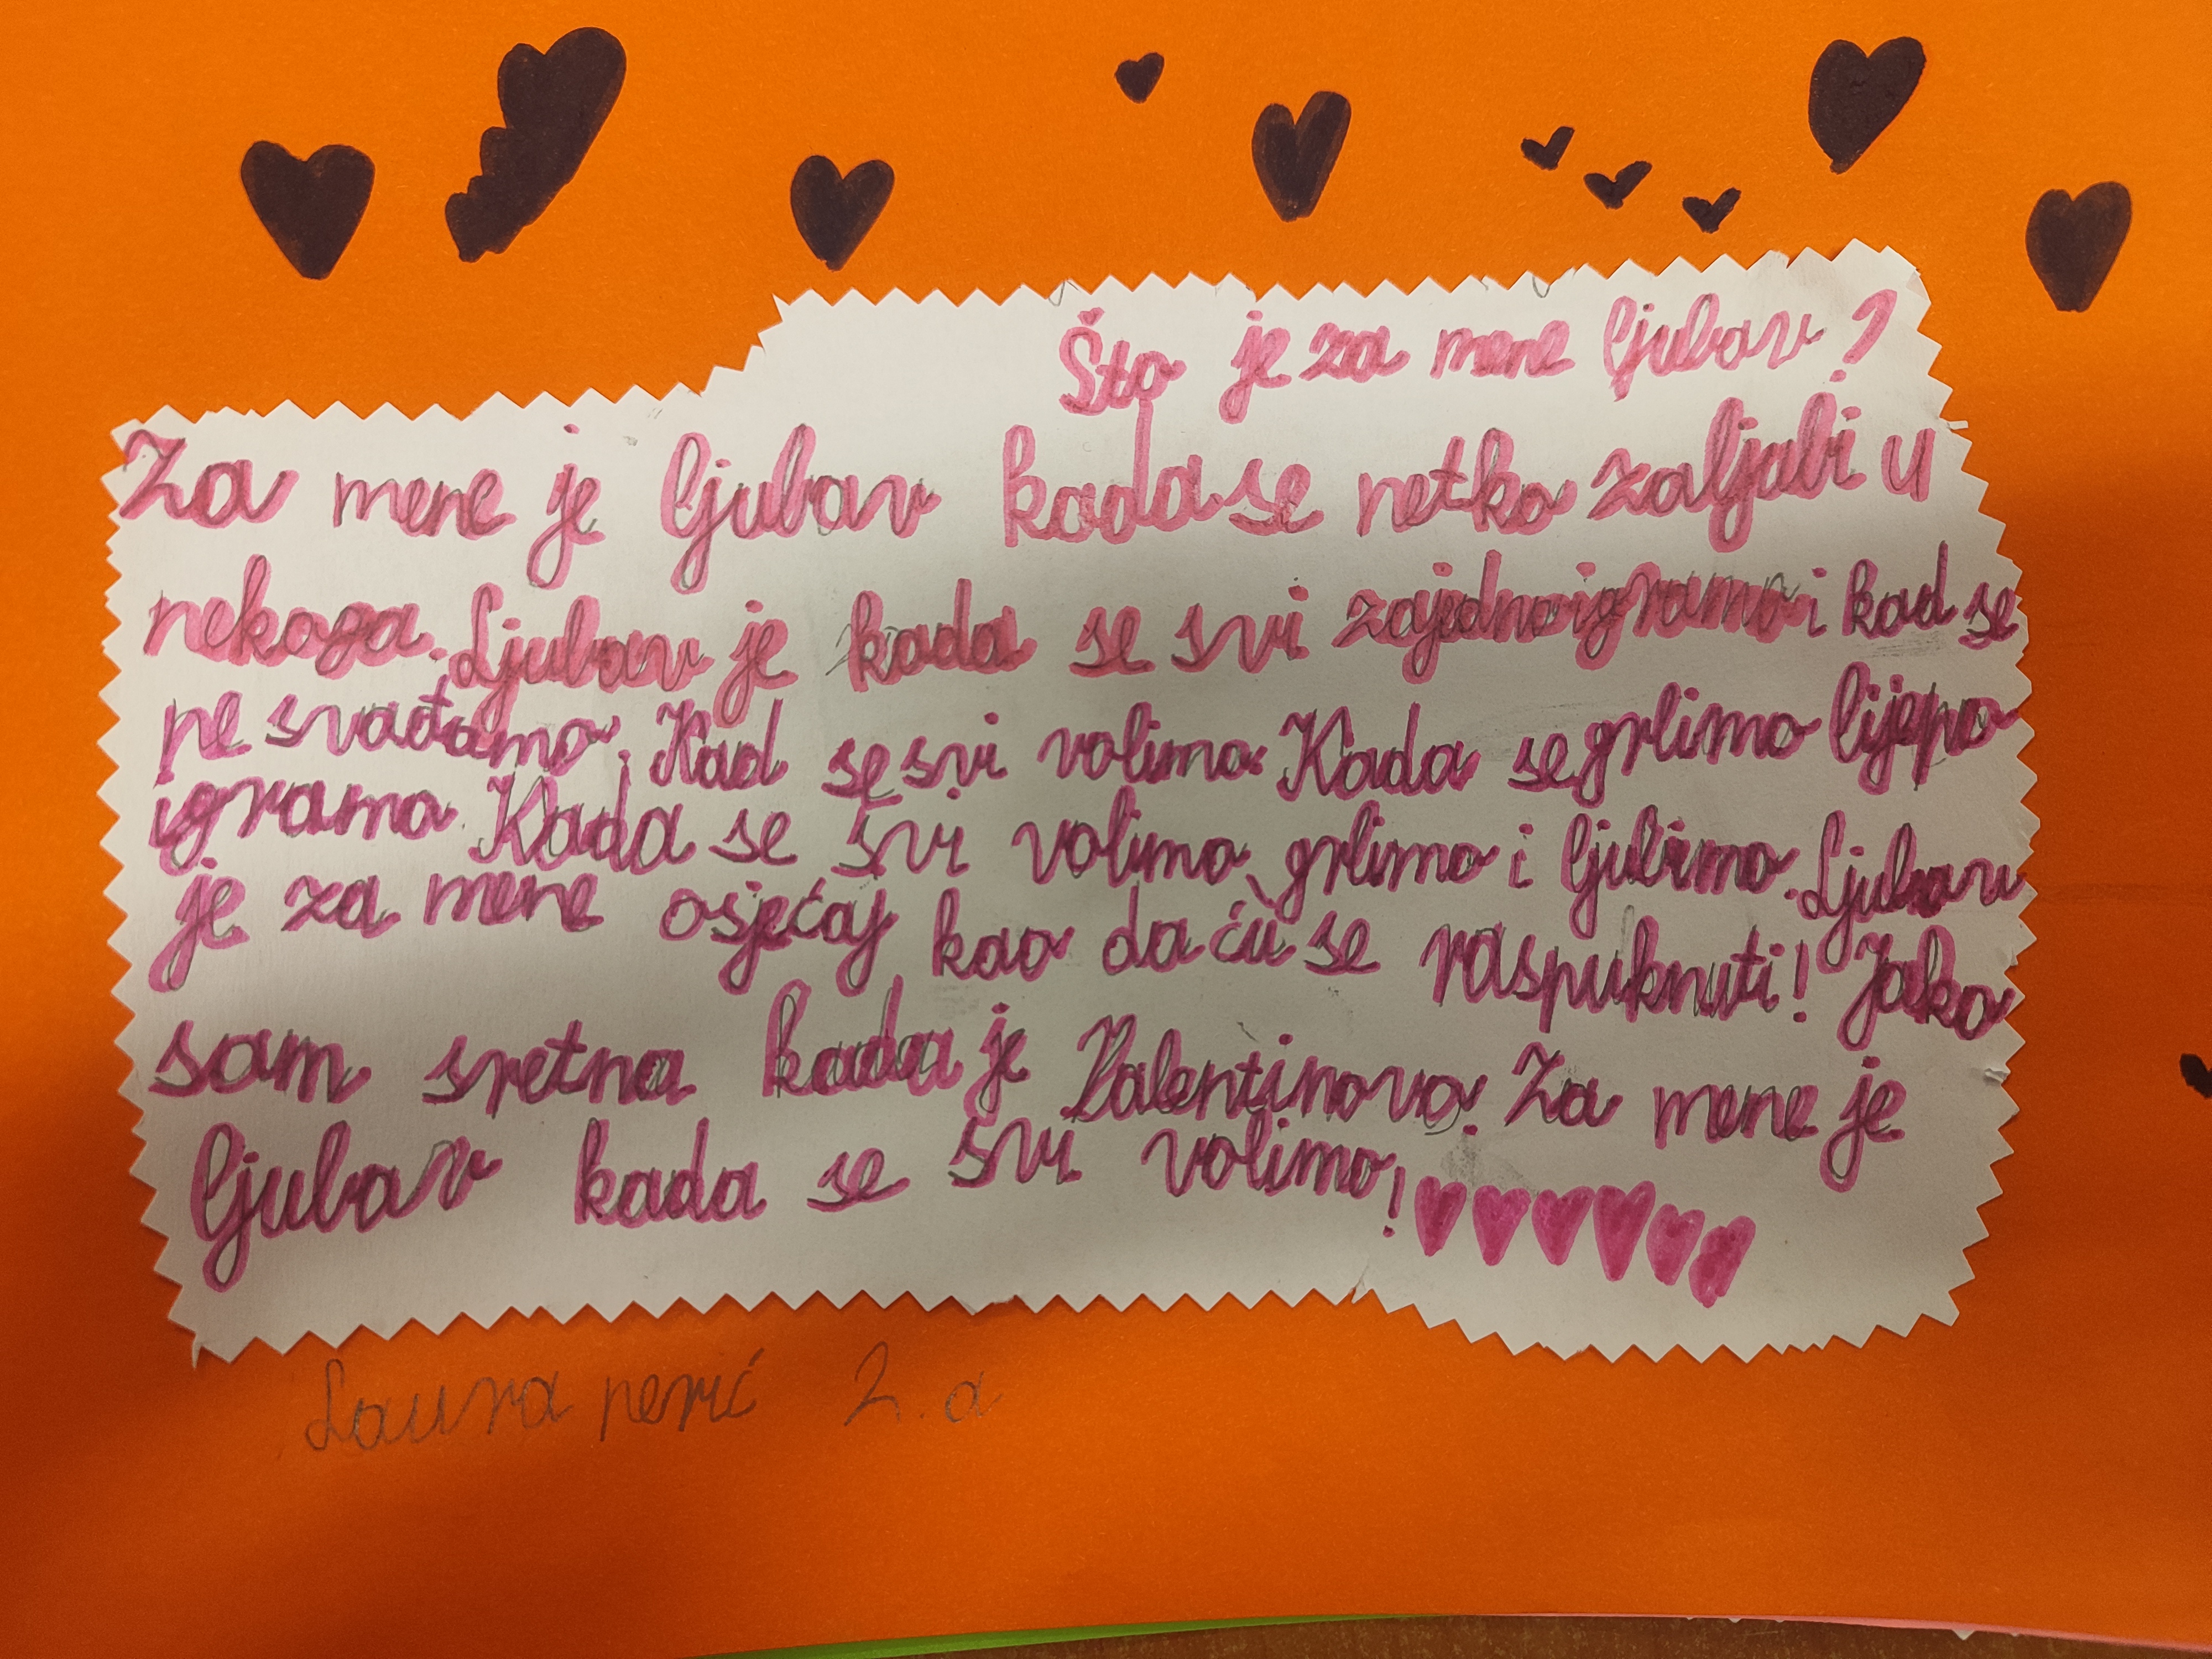 Što je za mene ljubav?
Za mene je ljubav kada se netko zaljubi u
nekoga. Ljubav je kada se svi zajedno igramo i kad se
ne svađamo. Kad se svi volimo. Kada se grlimo lijepo
igramo. Kada se svi volimo, grlimo i ljubimo. Ljubav
je za mene osjećaj kao da ću se raspuknuti! Jako
sam sretna kada je Valentinovo. Za mene je
ljubav kada se svi volimo!
Laura perić 2. a